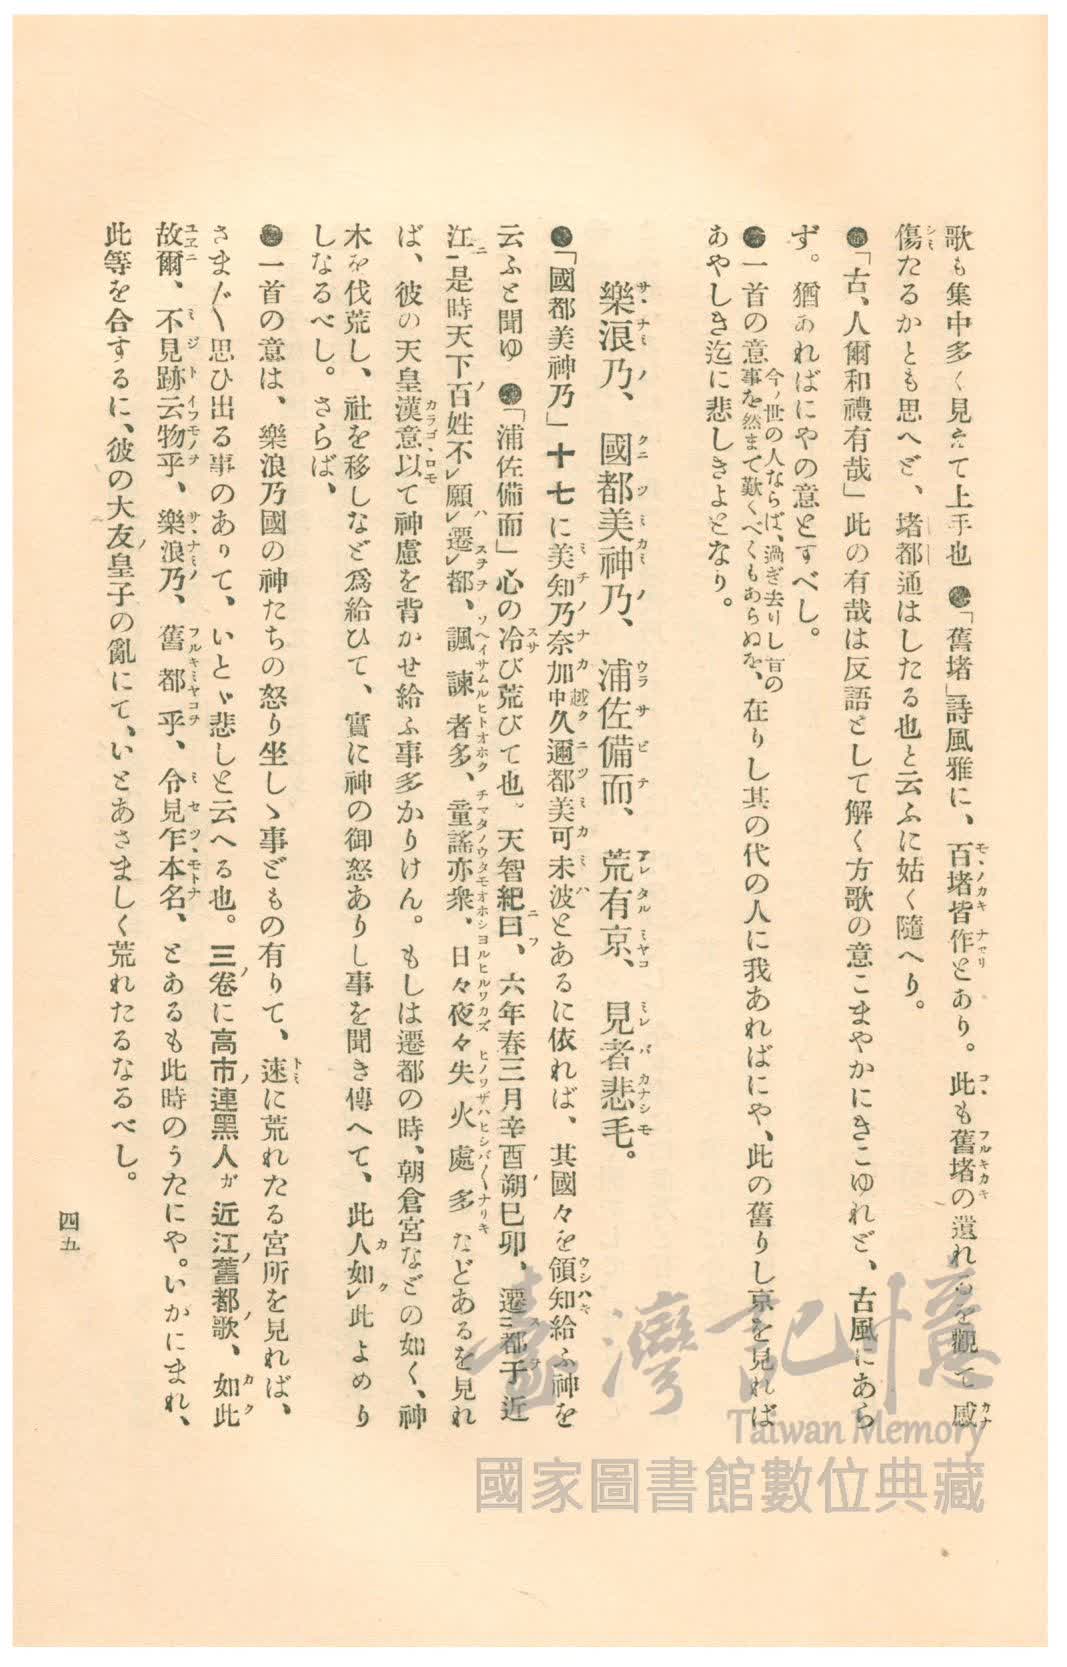 歌も集中多く見えて上手也 ●「舊堵」詩風雅に、百堵皆作とあり。此も舊堵の遺れるを觀て感
傷たるかとも思へど、堵都通はしたる也と云ふに姑く隨へり。
●「古、人爾和禮有哉」此の有哉は反語として解く方歌の意こまやかにきこゆれど、古風にあら
ず。猶あればにやの意とすべし。
●一首の意今ノ世の人ならば、過ぎ去りし昔の事を然まで歎くべくもあらぬを、在りし其の代の人に我あればにや、此の舊りし京を見れば
あやしき迄に悲しきよとなり。
樂浪乃、國都美神乃、浦佐備而、荒有京、見者悲毛。
●「國都美神乃」十七に美知乃奈加越中久邇都美可未波とあるに依れば、其國々を領知給ふ神を
云ふと聞ゆ ●「浦佐備而」心の冷び荒びて也。天智紀曰、六年春三月辛酉朔巳卯、遷二都于近
江一是時天下百姓不レ願レ遷レ都、諷諫者多、童謠亦衆、日々夜々失火處多などあるを見れ
ば、彼の天皇漢意以て神慮を背かせ給ふ事多かりけん。もしは遷都の時、朝倉宮などの如く、神
木を伐荒し、社を移しなど爲給ひて、實に神の御怒ありし事を聞き傳へて、此人如レ此よめり
しなるべし。さらば、
●一首の意は、樂浪乃國の神たちの怒り坐しゝ事どもの有りて、速に荒れたる宮所を見れば、
さまざま思ひ出る事のありて、いとゞ悲しと云へる也。三卷に高市連黑人ガ近江舊都歌、如此
故爾、不見跡云物乎、樂浪乃、舊都乎、令見乍本名、とあるも此時のうたにや。いかにまれ、
此等を合するに、彼の大友皇子の亂にて、いとあさましく荒れたるなるべし。
四五
臺灣記憶
Taiwan Memory
國家圖書館數位典藏